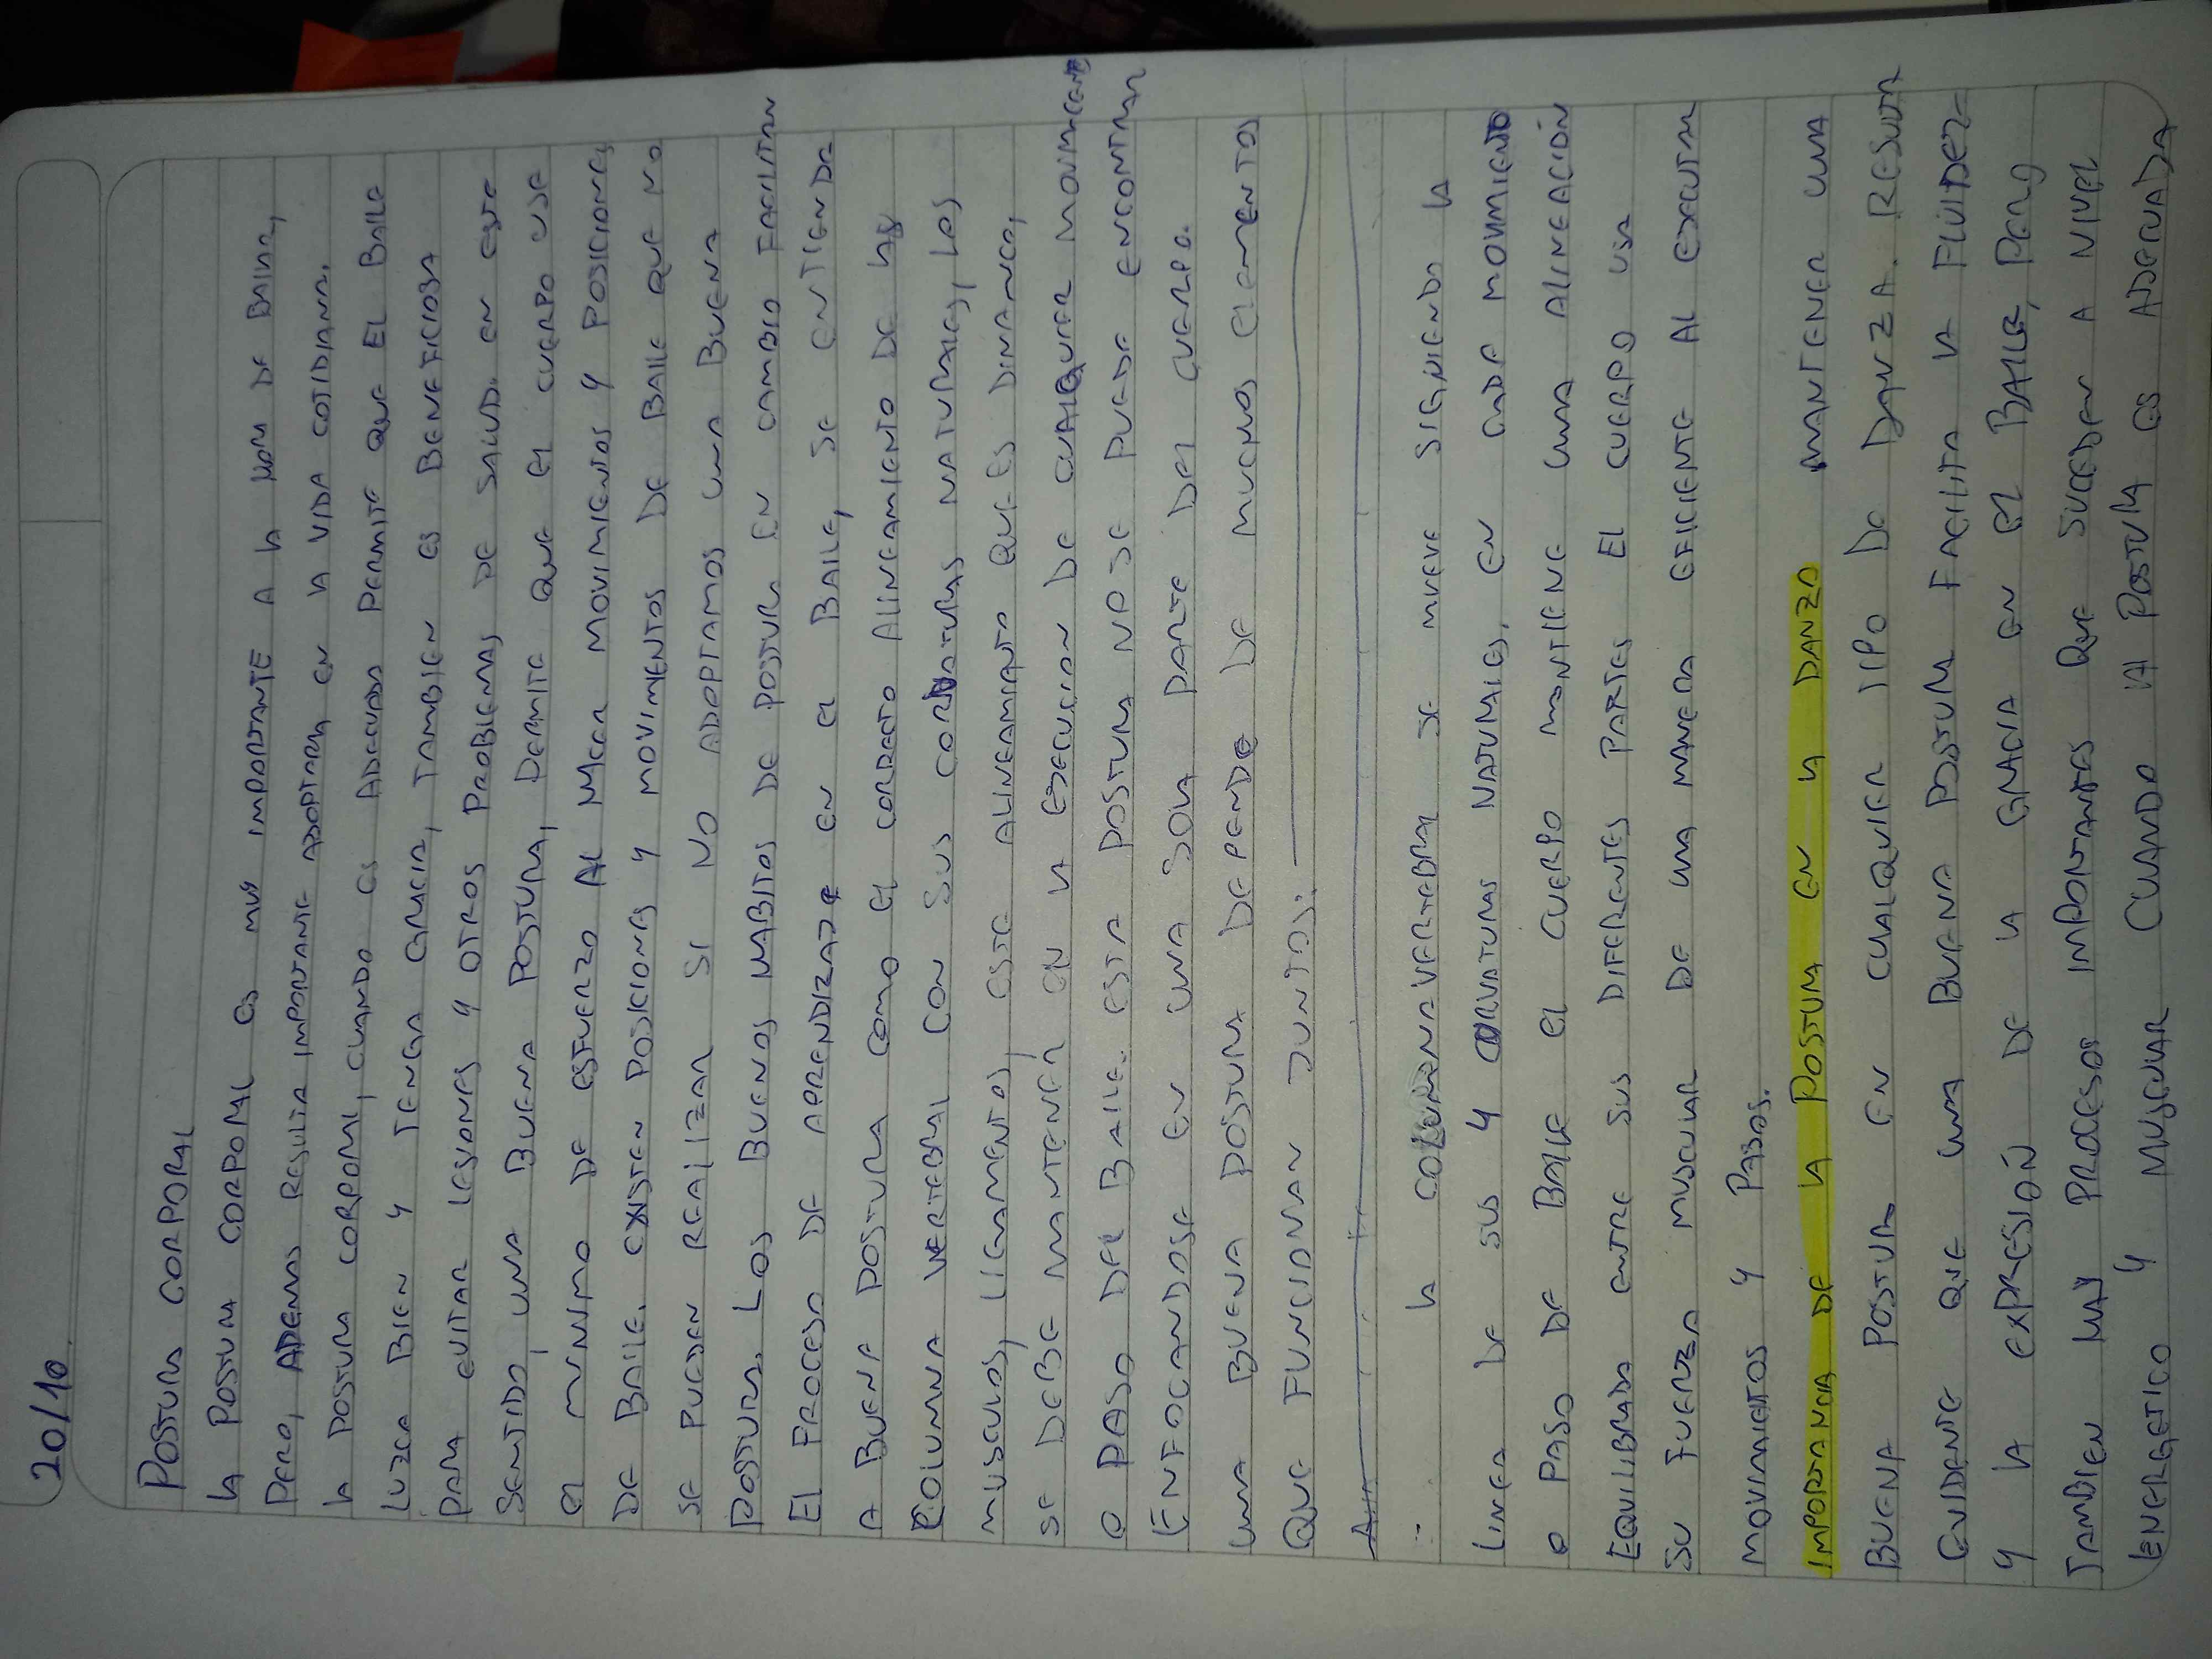 20/10
POSTURA CORPORAL
LA POSTURA CORPORAL ES MUY IMPORTANTE A LA HORA DE BAILAR,
PERO, ADEMAS RESULTA IMPORTANTE ADOPTARLA EN LA VIDA COTIDIANA.
LA POSTURA CORPORAL, CUANDO ES ADECUADA PERMITE QUE EL BAILE
LUZCA BIEN Y TENGA GRACIA, TAMBIEN ES BENEFICIOSA
PARA EVITAR LESIONES Y OTROS PROBLEMAS DE SALUD. EN ESTE
SENTIDO, UNA BUENA POSTURA, PERMITE QUE EL CUERPO USE
EL MINIMO DE ESFUERZO AL HACER MOVIMIENTOS Y POSICIONES
DE BAILE. EXISTEN POSICIONES Y MOVIMIENTOS DE BAILE QUE NO
SE PUEDEN REALIZAR SI NO ADOPTAMOS UNA BUENA
POSTURA. LOS BUENOS HABITOS DE POSTURA EN CAMBIO FACILITAN
EL PROCESO DE APRENDIZAJE EN EL BAILE, SE ENTIENDE
A BUENA POSTURA COMO EL CORRECTO ALINEAMIENTO DE LA
COLUMNA VERTEBRAL CON SUS CORVATURAS NATURALES, LOS
MUSCULOS, LIGAMENTOS, ESTE ALINEAMIENTO QUE ES DINAMICO,
SE DEBE MANTENER EN LA EJECUCION DE CUALQUIER MOVIMIENTO
O PASO DEL BAILE. ESTA POSTURA NO SE PUEDE ENCONTRAR
ENFOCANDOSE EN UNA SOLA PARTE DEL CUERPO.
UNA BUENA POSTURA DEPENDE DE MUCHOS ELEMENTOS
QUE FUNCIONAN JUNTOS:
∴ LA COLUMNA VERTEBRAL SE MUEVE SIGUIENDO LA
LINEA DE SUS 4 CURVATURAS NATURALES, EN CADA MOVIMIENTO
O PASO DE BAILE EL CUERPO MANTIENE UNA ALINEACIÓN
EQUILIBRADA ENTRE SUS DIFERENTES PARTES EL CUERPO USA
SU FUERZA MUSCULAR DE UNA MANERA EFICIENTE AL EJECUTAR
MOVIMIENTOS Y PASOS.
IMPORTANCIA DE LA POSTURA EN LA DANZA MANTENER UNA
BUENA POSTURA EN CUALQUIER TIPO DE DANZA. RESULTA
EVIDENTE QUE UNA BUENA POSTURA FACILITA LA FLUIDEZ
Y LA EXPRESIÓN DE LA GRACIA EN EL BAILE, PERO
TAMBIEN HAY PROCESOS IMPORTANTES QUE SUCEDEN A NIVEL
ENERGETICO Y MUSCULAR CUANDO LA POSTURA ES ADECUADA